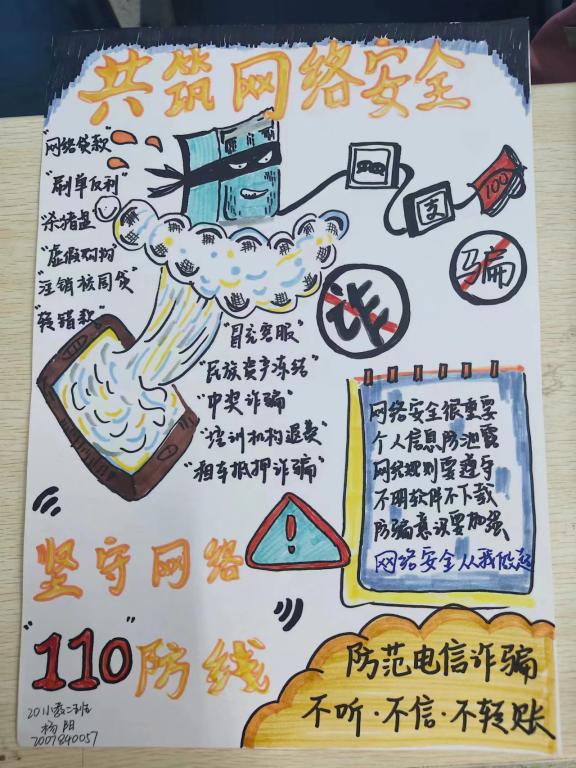 共筑网络安全
"网络贷款"
"刷单反利"
"杀猪盘"
"虚假购物"
"注销校园贷"
100
支
骗
诈
"冒充客服"
"民族资产冻结"
"中奖诈骗"
"培训机构退费"
"租车抵押诈骗"
网络安全很重要
个人信息防泄露
网络规则要遵守
不明软件不下载
防骗意识要加强
网络安全从我做起
!
坚守网络
"110"防线
防范电信诈骗
不听·不信·不轻账
杨阳
2007840057